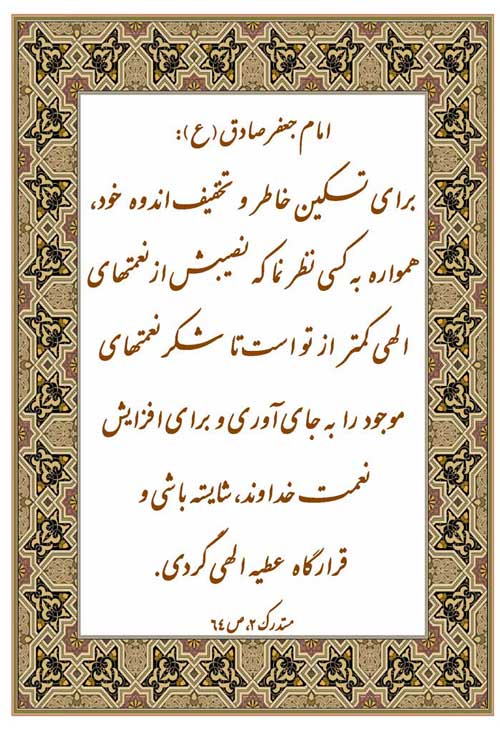 امام جعفر صادق (ع):
برای تسکین خاطر و تخفیف اندوه خود،
همواره به کسی نظر نما که نصیبش از نعمتهای
الهی کمتر از تو است تا شکر نعمتهای
موجود را به جای آوری و برای افزایش
نعمت خداوند، شایسته باشی و
قرارگاه عطیه الهی گردی.
مستدرک ۲، ص ٦٤